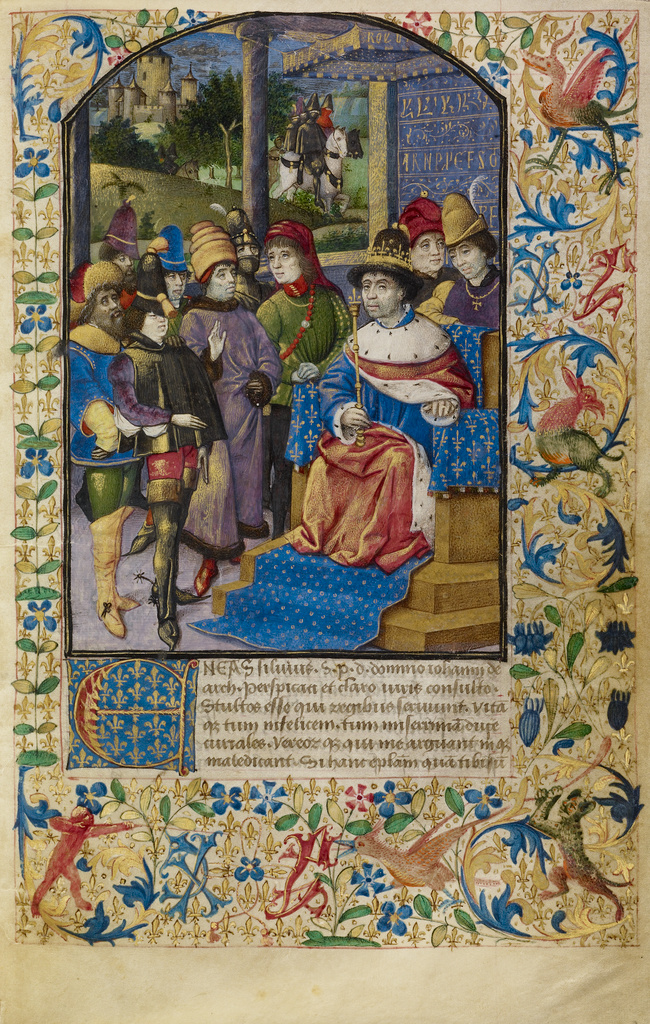 ENEAS siluius .S.p.d. domino iohanni de
arch. perspicaci et claro iuris consulto.
Stultos esse qui regibus seruiunt. vitā
qꝫ tum infelicem. tum miserrimā duce
curiales. Vereor qꝫ qui me arguant inqꝫ
maledicant. Si hanc eplam quā tibi sū